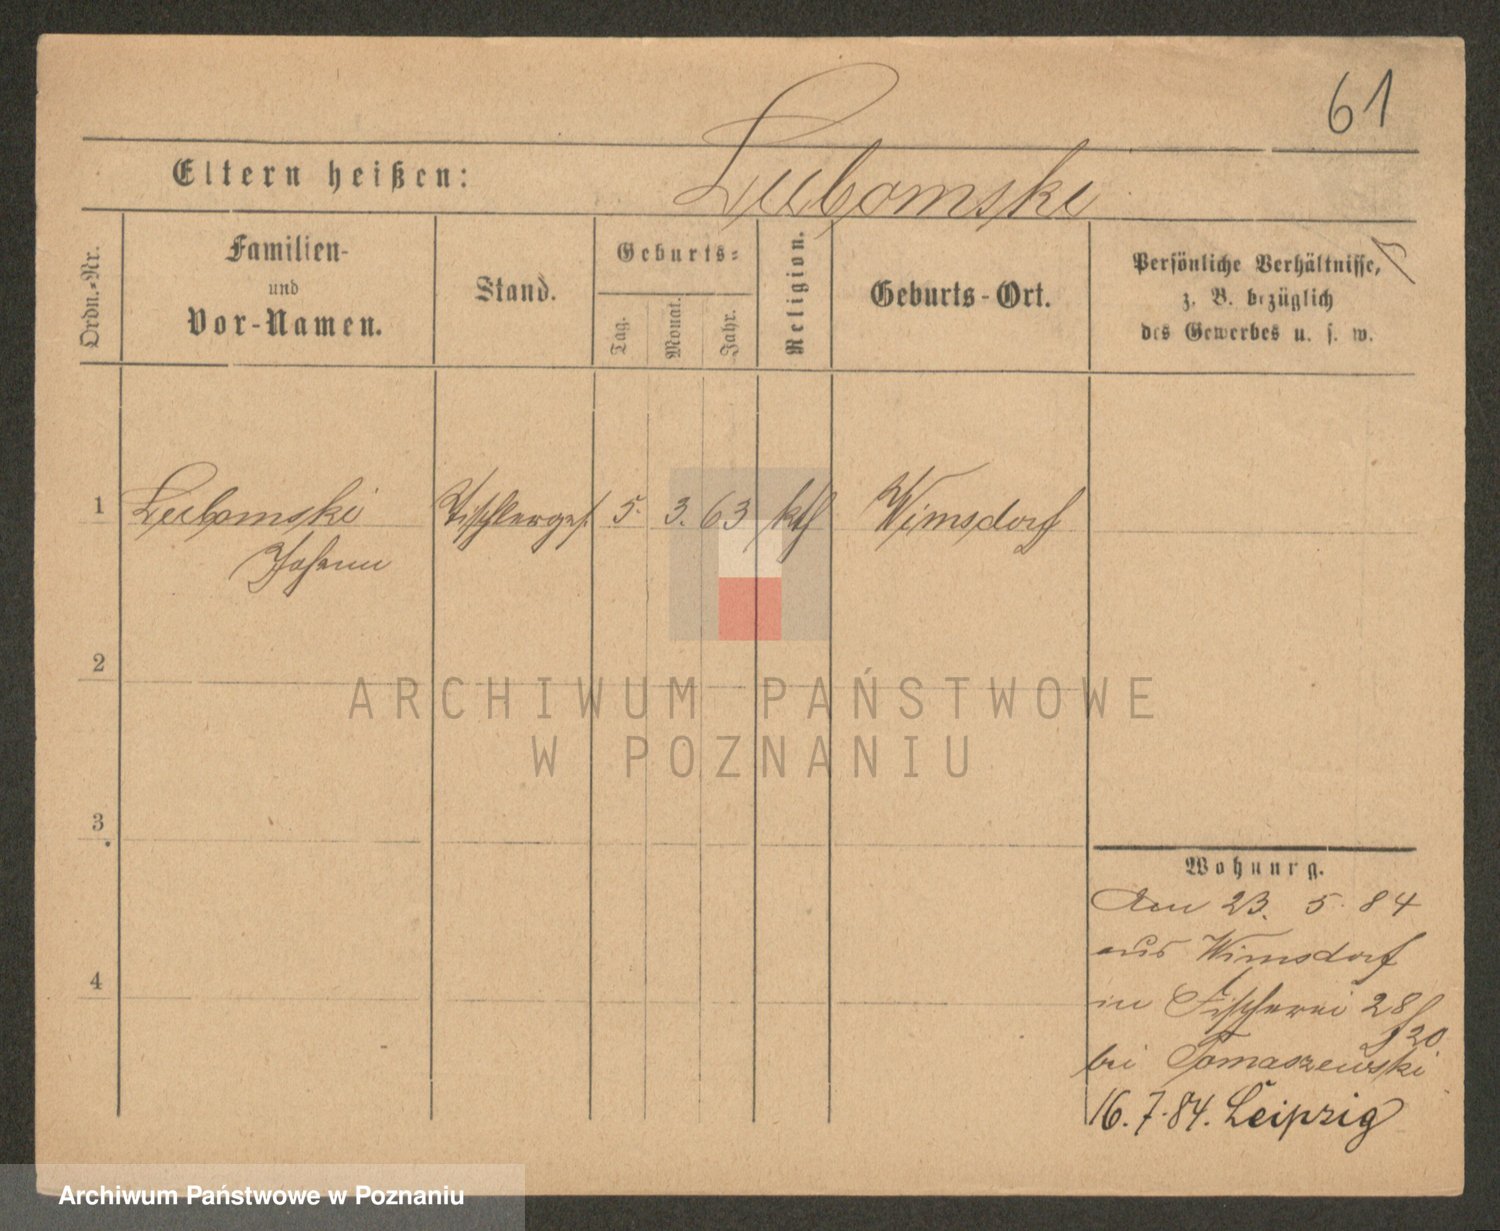 61
Eltern heißen: Lubomski
Ordn.-Nr.
Familien-
und
Vor-Namen.
Stand.
Geburts-
Tag.
Monat.
Jahr.
Religion.
Geburts-Ort.
Persönliche Verhältnisse,
z. B. bezüglich
des Gewerbes u. s. w.
1 Lubomski Tischlerges. 5. 3. 63 kth Wimsdorf
Johann
2
3
4
ARCHIWUM PAŃSTWOWE
W POZNANIU
Wohnung.
Am 23. 5. 84
aus Wimsdorf
in Fischerei 28
20
bei Tomaszewski
16.7.84. Leipzig
Archiwum Państwowe w Poznaniu